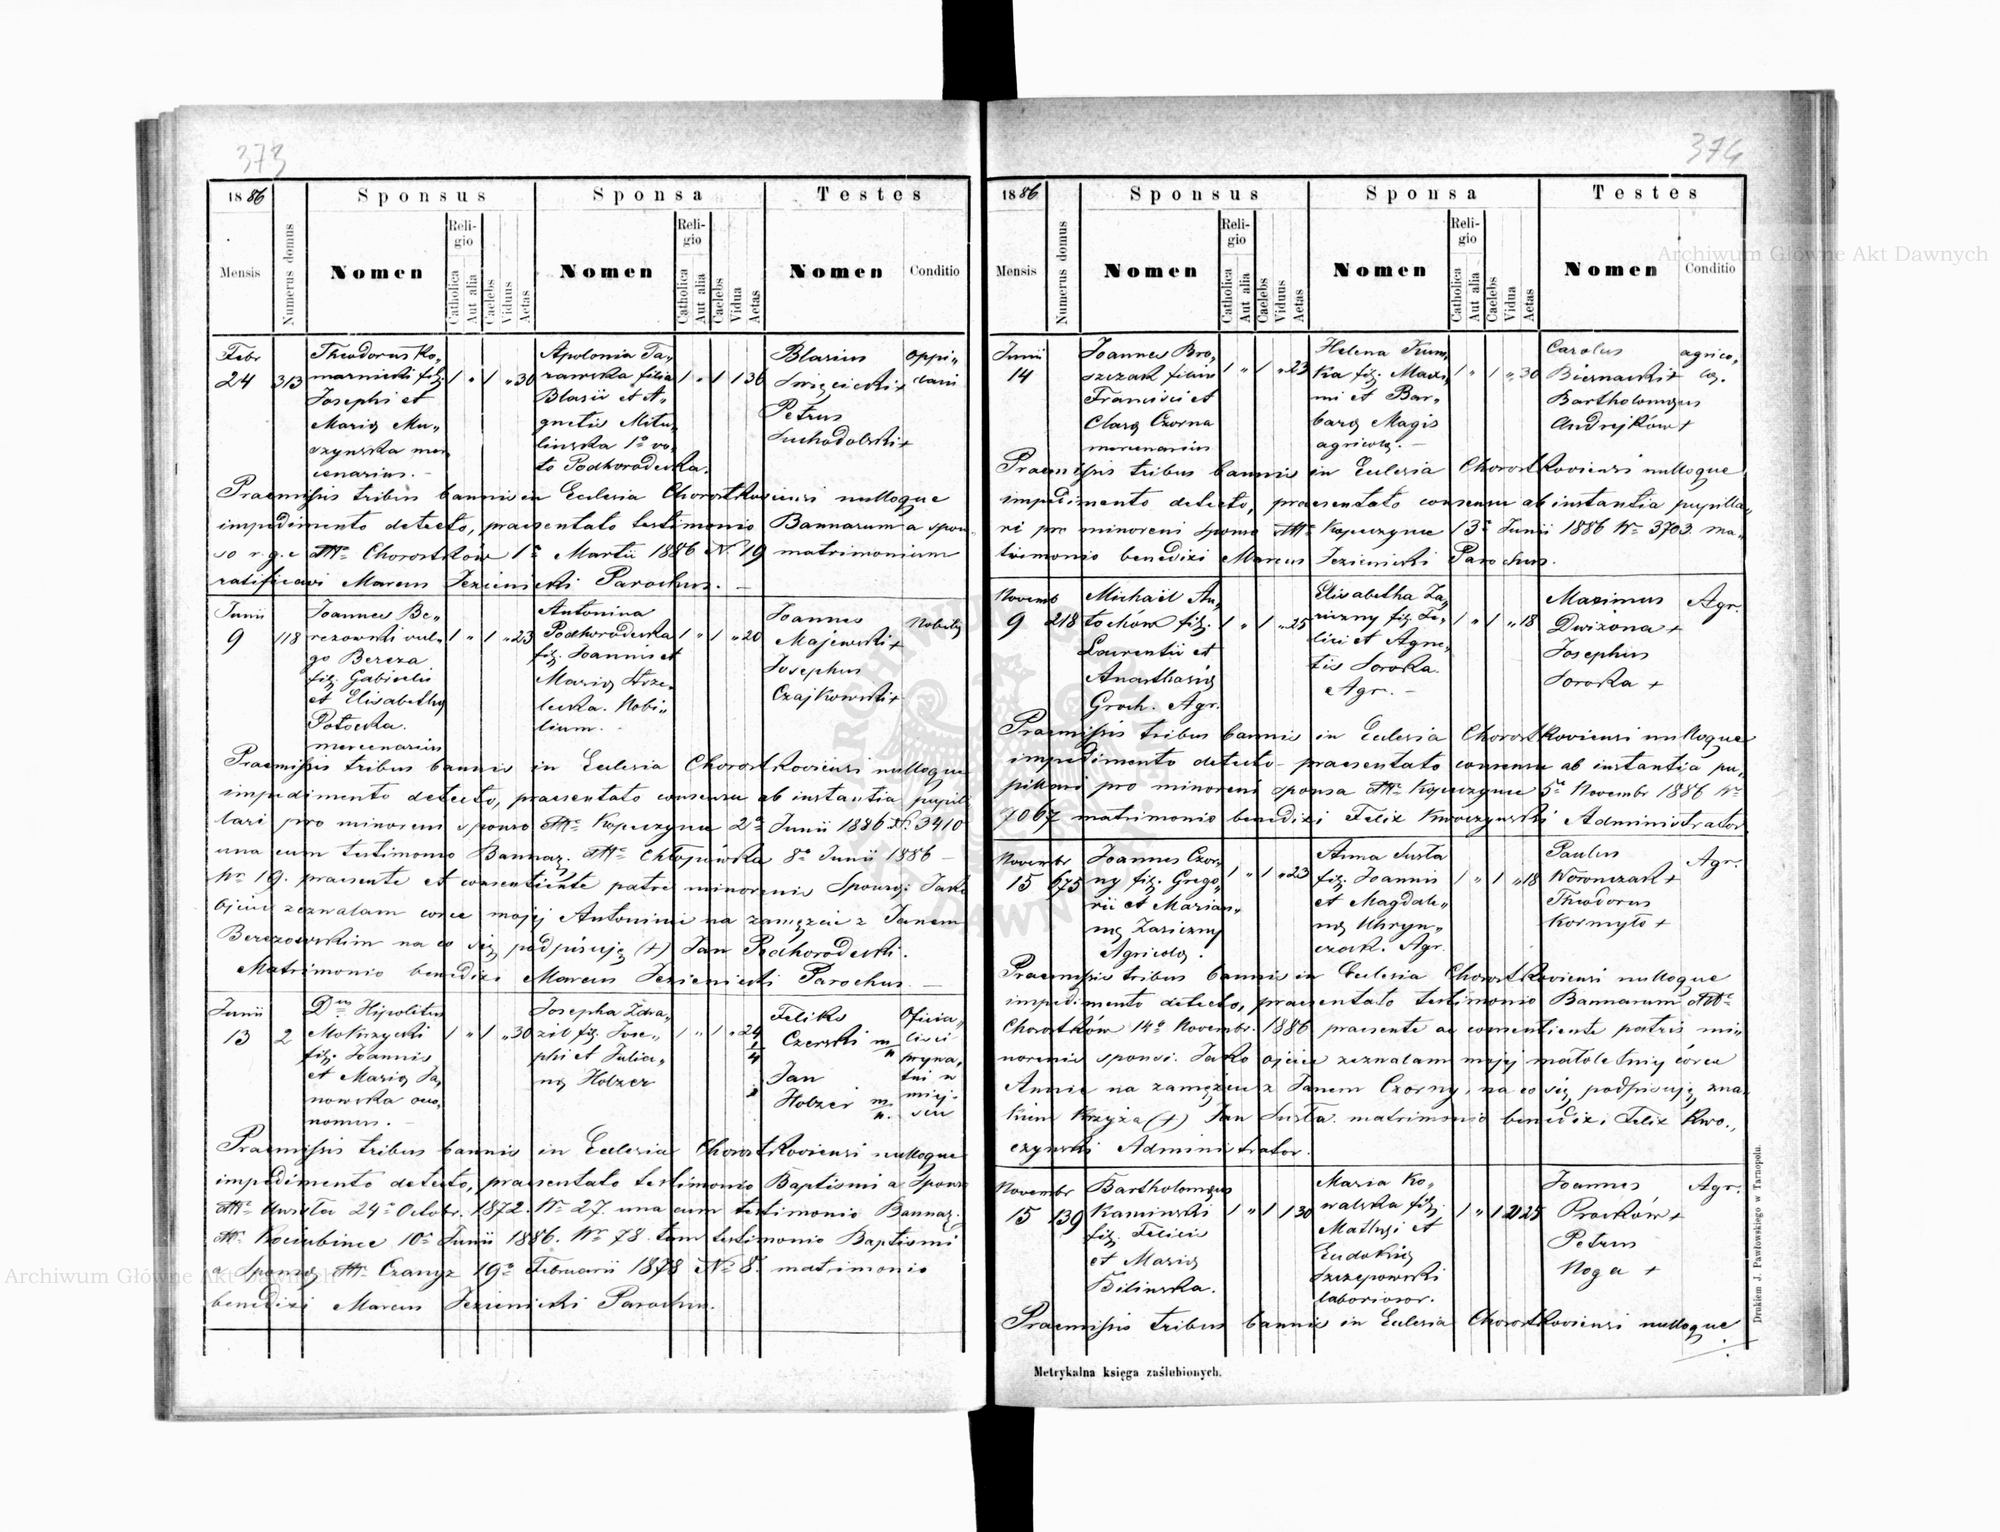 373
1886
Sponsus
Sponsa
Testes
Mensis
Numerus domus
Nomen
Religio
Catholica
Aut alia
Caelebs
Viduus
Aetas
Nomen
Religio
Catholica
Aut alia
Caelebs
Vidua
Aetas
Nomen
Conditio
Febr
24
313
Theodorus Ko„
marnicki filj.
Josephi et
Mariæ Mu„
szynska mer
cenarius. -
1 „ 1 „ 30
Apolonia Ta„
rawska filia
Blasii et A„
gnetis Mitu„
linska 1º vo„
to Podhorodecka.
1 „ 1 1 36
Blasius
Święcicki +
Petrus
Suchodolski +
oppi„
dani
Praemissis tribus bannis in Ecclesia Chorostkoviensi nulloque
impedimento detecto, praesentato testimonio Bannarum a spon„
so r.g.c. Chorostków 1ª Martii 1886 Nº 19 matrimonium
ratificavi Marcus Jezienicki Parochus. —
Junii
9
118
Joannes Be„
rezowski vul„
go Bereza
filj. Gabrielis
et Elisabethæ
Potocka.
mercenarius
1 „ 1 „ 23
Antonina
Podhorodecka
filj. Joannis et
Mariæ Strze„
lecka. Nobi„
lium. -
1 „ 1 „ 20
Joannes
Majewski +
Josephus
Czajkowski +
Nobiles
Praemissis tribus bannis in Ecclesia Chorostkoviensi nulloque
impedimento detecto, praesentato consensu ab instantia pupil„
lari pro minoreni sponso Kopeczynce 2ª Junii 1886 Nº 3410
una cum testimonio Bannar. Chłopówka 8ª Junii 1886 —
Nr 19. praesente et consentiente patre minorenis Sponsæ: Jako
Ojciec zezwalam córce mojej Antoninie na zamęzcie z Janem
Berezowskim na co się podpisuję (+) Jan Podhorodecki.
Matrimonio benedixi Marcus Jezienicki Parochus. —
Junii
13
2
Dnus Hipolitus
Mokrzycki
filj. Joannis
et Mariæ Ja„
nowska oeco„
nomus. -
1 „ 1 „ 30
Josepha Zdra„
zil filj. Jose„
phi et Julia„
næ Holzer
1 „ 1 „ 24
Feliks
Czerski
Jan
Holzer
Oficia„
liści
prywa„
tni w
miej„
scu
Praemissis tribus bannis in Ecclesia Chorostkoviensi nulloque
impedimento detecto, praesentato testimonio Baptismi a Sponso
24ª Octobr. 1872. Nr 27. una cum testimonio Bannar.
Kociubince 10ª Junii 1886. Nr 78. tum testimonio Baptismi
a Sponsæ 19ª Februarii 1878 Nº 8. matrimonio
benedixi Marcus Jezienicki Parochus.
374
1886
Sponsus
Sponsa
Testes
Mensis
Numerus domus
Nomen
Religio
Catholica
Aut alia
Caelebs
Viduus
Aetas
Nomen
Religio
Catholica
Aut alia
Caelebs
Vidua
Aetas
Nomen
Conditio
Junii
14
Joannes Bro„
szczak filius
Francisci et
Claræ Czorna
mercenarius
1 „ 1 „ 23
Helena Krum„
ka filj. Maxi„
mi et Bar„
baræ Magis
agricolæ. -
1 „ 1 „ 30
Carolus
Biernacki +
Bartholomæus
Andrejków +
agrico„
læ.
Praemissis tribus bannis in Ecclesia Chorostkoviensi nulloque
impedimento detecto, praesentato consensu ab instantia pupilla„
ri pro minoreni sponso Kopeczynce 13ª Junii 1886 Nº 3703. ma„
trimonio benedixi Marcus Jezienicki Parochus.
Novemb
9
218
Michaël An„
tochów filj.
Laurentii et
Anasthasiæ
Groch. Agr.
1 „ 1 „ 25
Elisabetha Za„
riczny filj. Fe„
licis et Agne„
tis Soroka.
Agr. -
1 „ 1 „ 18
Maximus
Dwizona +
Josephus
Soroka +
Agr.
Praemissis tribus bannis in Ecclesia Chorostkoviensi nulloque
impedimento detecto - praesentato consensu ab instantia pu„
pillari pro minoreni sponsa Kopeczynce 5ª Novembr 1886 Nr
7067 matrimonio benedixi Felix Kwoczynski Administrator
Novembr
15
675
Joannes Czor„
ny filj. Grego„
rii et Marian„
næ Zariczny
Agricolæ.
1 „ 1 „ 23
Anna Susta
filj. Joannis
et Magdale„
næ Uhryn„
czak. Agr.
1 „ 1 „ 18
Paulus
Woronczak +
Theodorus
Kormyło +
Agr.
Praemissis tribus bannis in Ecclesia Chorostkoviensi nulloque
impedimento detecto, praesentato testimonio Bannarum
Chorostków 14ª Novembr. 1886 praesente ac consentiente patris mi„
norenis sponsi. Jako ojciec zezwalam mojej małoletniej córce
Annie na zamęzcie z Janem Czorny, na co się podpisuję zna„
kiem Krzyża (+) Jan Susta. matrimonio benedixi Felix Kwo„
czynski Administrator.
Novembr
15
139
Bartholomæus
Kaminski
filj. Felicis
et Mariæ
Bilinska.
1 „ 1 1 30
Maria Ko„
walska filj.
Mathæi et
Eudokiæ
Szczepowski
laboriosor.
1 „ 1 25
Joannes
Proćków +
Petrus
Noga +
Agr.
Praemissis tribus bannis in Ecclesia Chorostkoviensi nulloque
Metrykalna księga zaślubionych.
Drukiem J. Pawłowskiego w Tarnopolu.
Archiwum Główne Akt Dawnych
Archiwum Główne Akt Dawnych
ARCHIWUM GŁÓWNE AKT DAWNYCH